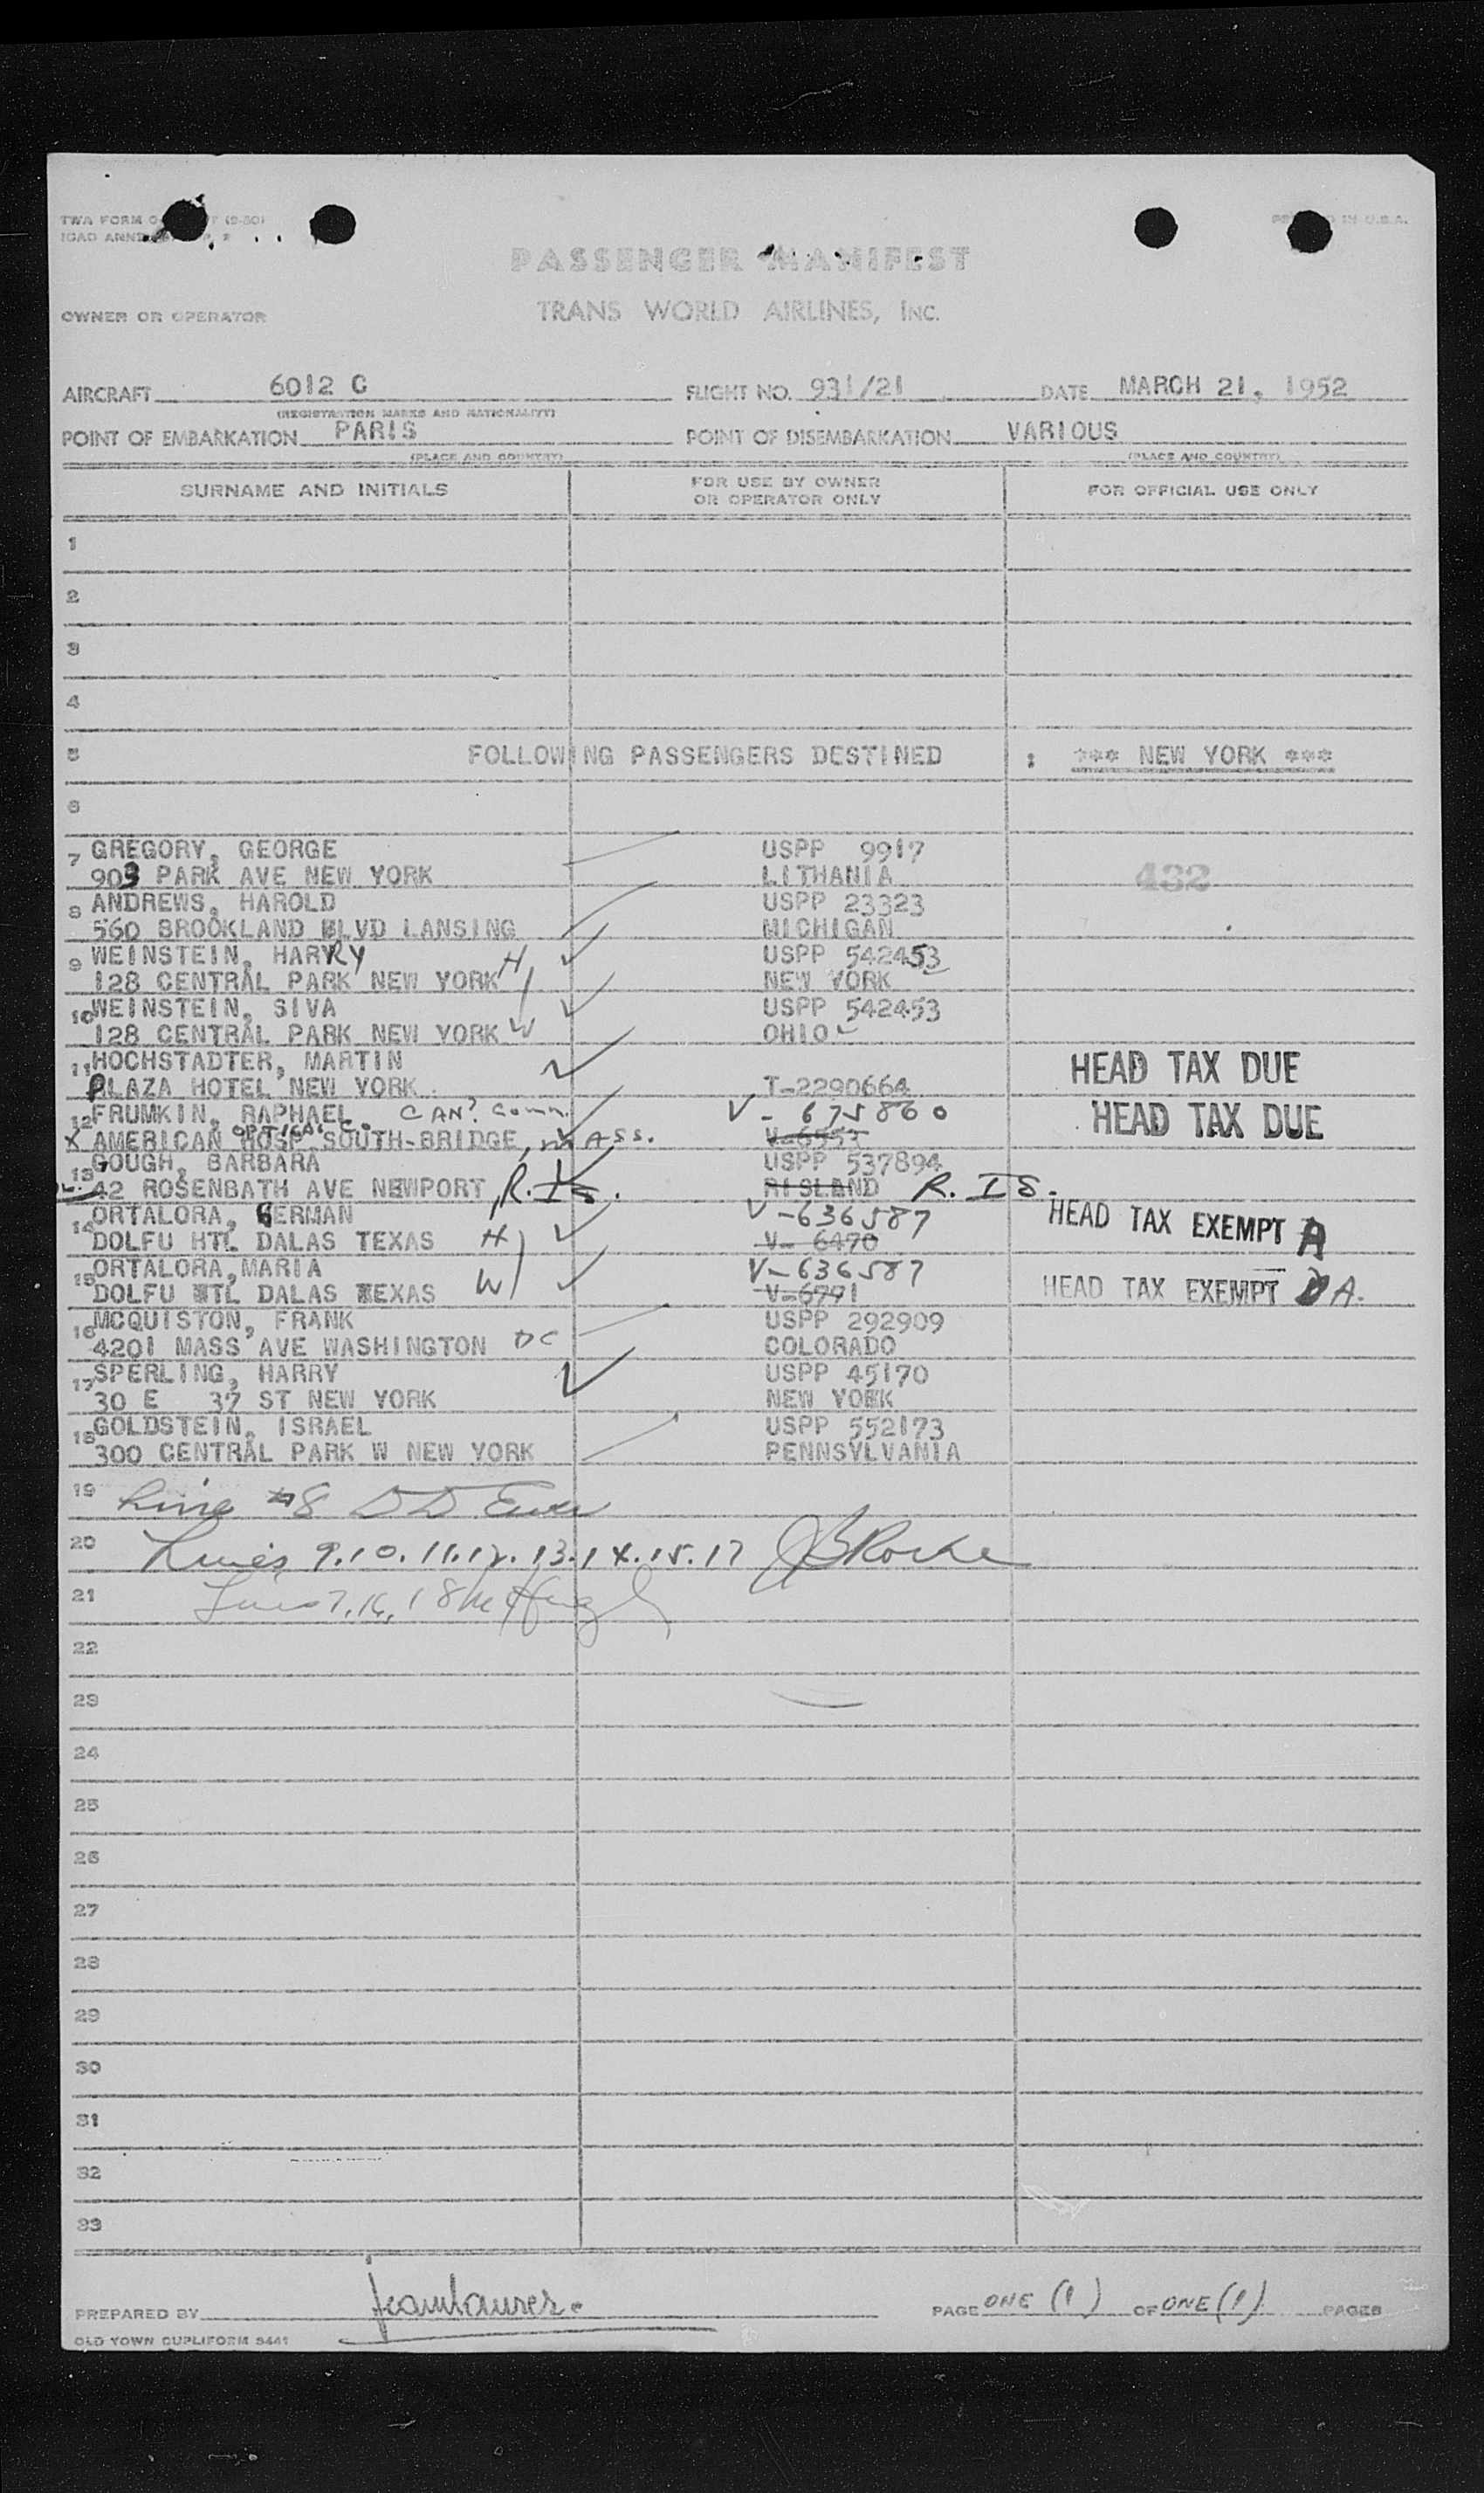 TWA FORM
PRINTED IN U.S.A.
PASSENGER MANIFEST
OWNER OR OPERATOR TRANS WORLD AIRLINES, INC.
AIRCRAFT 6012 C FLIGHT NO. 931/21 DATE MARCH 21, 1952
(REGISTRATION MARKS AND NATIONALITY)
POINT OF EMBARKATION PARIS POINT OF DISEMBARKATION VARIOUS
(PLACE AND COUNTRY) (PLACE AND COUNTRY)
SURNAME AND INITIALS FOR USE BY OWNER OR OPERATOR ONLY FOR OFFICIAL USE ONLY
1
2
3
4
5 FOLLOWING PASSENGERS DESTINED : *** NEW YORK ***
6
7 GREGORY, GEORGE USPP 9917
903 PARK AVE NEW YORK LITHANIA 432
8 ANDREWS, HAROLD USPP 23323
560 BROOKLAND BLVD LANSING MICHIGAN
9 WEINSTEIN, HARRY USPP 542453
128 CENTRAL PARK NEW YORK H NEW YORK
10 WEINSTEIN, SIVA USPP 542453
128 CENTRAL PARK NEW YORK W OHIO
11 HOCHSTADTER, MARTIN HEAD TAX DUE
PLAZA HOTEL NEW YORK T-2290664
12 FRUMKIN, RAPHAEL CAN? Comm. V-675860 HEAD TAX DUE
X AMERICAN HOSP OPTICAL Co SOUTH-BRIDGE, MASS. V-6553
13 GOUGH, BARBARA USPP 537894
42 ROSENBATH AVE NEWPORT, R. Is. RISLAND R. IS.
14 ORTALORA, GERMAN V-636587 HEAD TAX EXEMPT A
DOLFU HTL DALAS TEXAS H V- 6470
15 ORTALORA, MARIA V-636587 HEAD TAX EXEMPT A.
DOLFU HTL DALAS TEXAS W V-6791
16 MCQUISTON, FRANK USPP 292909
4201 MASS AVE WASHINGTON DC COLORADO
17 SPERLING, HARRY USPP 45170
30 E 37 ST NEW YORK NEW YORK
18 GOLDSTEIN, ISRAEL USPP 552173
300 CENTRAL PARK W NEW YORK PENNSYLVANIA
19 Line #8 DD
20 Lines 9.10.11.12.13.14.15.17 JB Rorke
21 Lines 7, 16, 18
22
23
24
25
26
27
28
29
30
31
32
33
PREPARED BY PAGE ONE (1) OF ONE (1) PAGES
OLD TOWN DUPLIFORM 5441